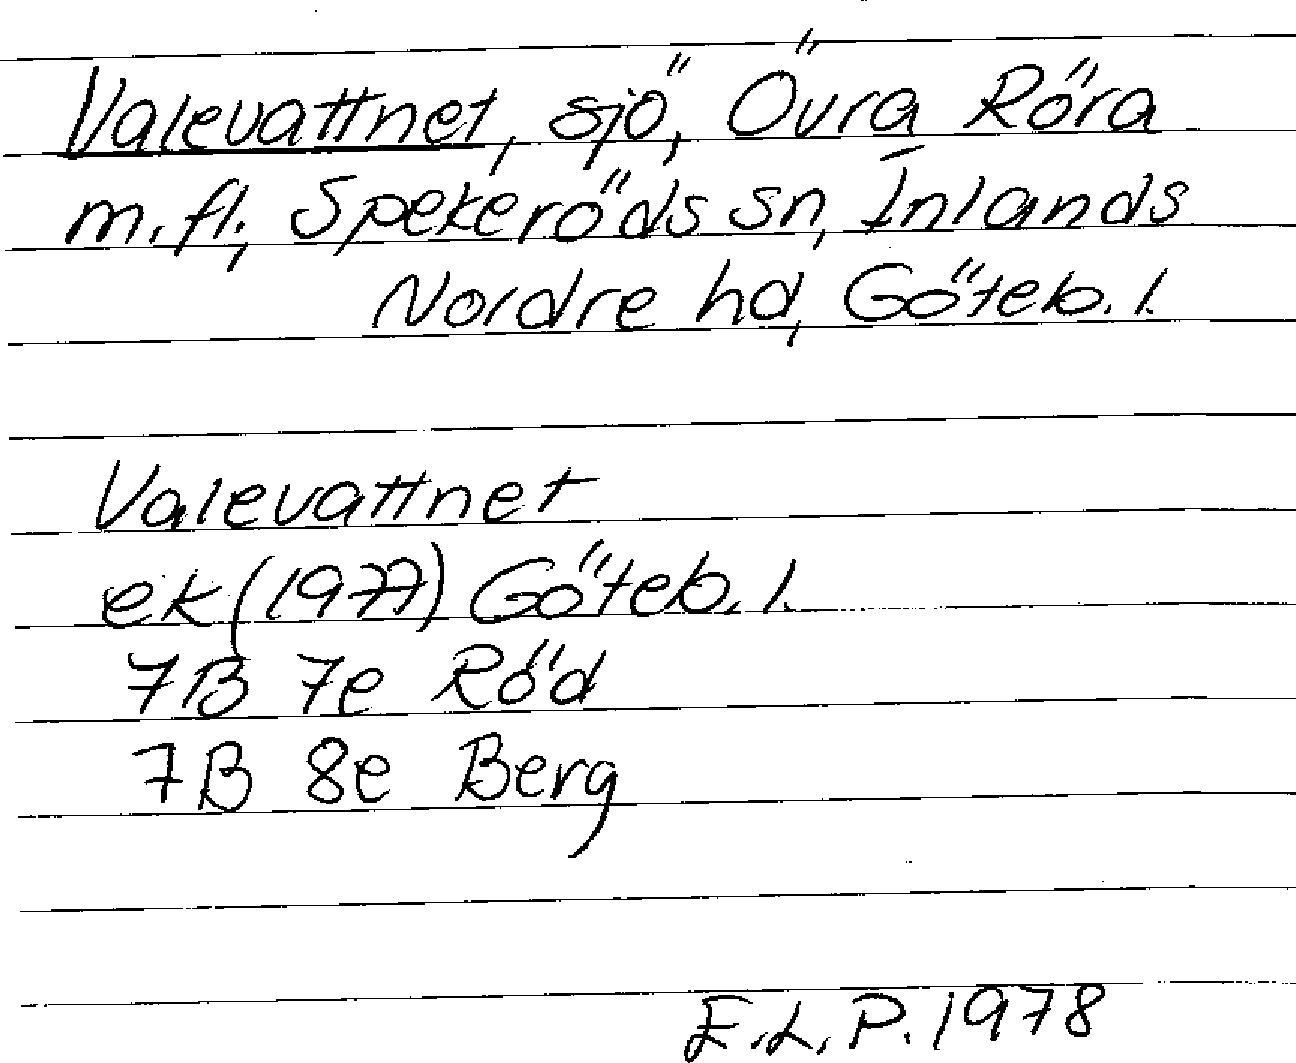 Valevattnet, sjö, Övra Röra
m.fl., Spekeröds sn, Inlands
Nordre hd, Göteb. l.
Valevattnet
ek (1977) Göteb. l.
7B 7e Röd
7B 8e Berg
E.L.P. 1978